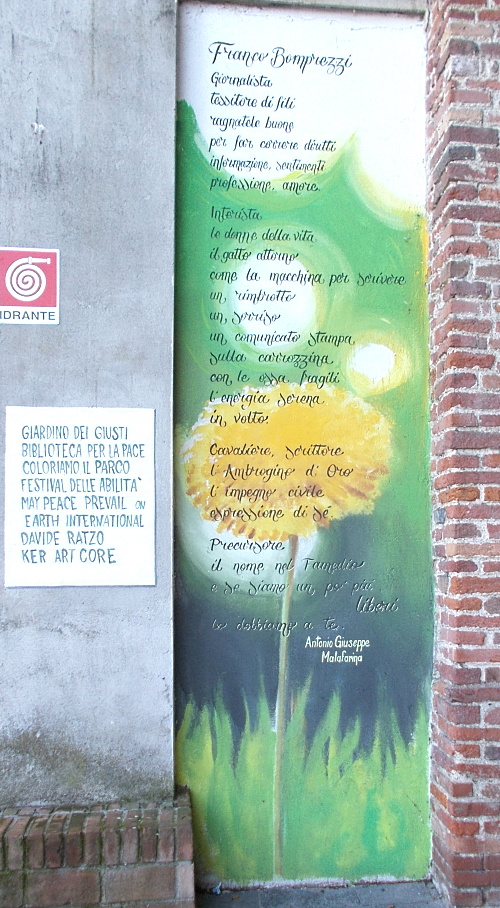 Franco Bomprezzi
Giornalista
tessitore di fili
ragnatele buone
per far correre diritti
informazione, sentimenti
professione, amore.
Interista
le donne della vita
il gatto attorno
come la macchina per scrivere
un rimbrotto
un sorriso
un comunicato stampa
sulla carrozzina
con le ossa fragili
l'energia serena
in volto.
Cavaliere, scrittore
l'Ambrogino d'Oro
l'impegno civile
espressione di sé.
Precursore
il nome nel Famedio
e se siamo un po' più
liberi
lo dobbiamo a te.
Antonio Giuseppe
Malafarina
IDRANTE
GIARDINO DEI GIUSTI
BIBLIOTECA PER LA PACE
COLORIAMO IL PARCO
FESTIVAL DELLE ABILITA'
MAY PEACE PREVAIL ON
EARTH INTERNATIONAL
DAVIDE RATZO
KER ART CORE